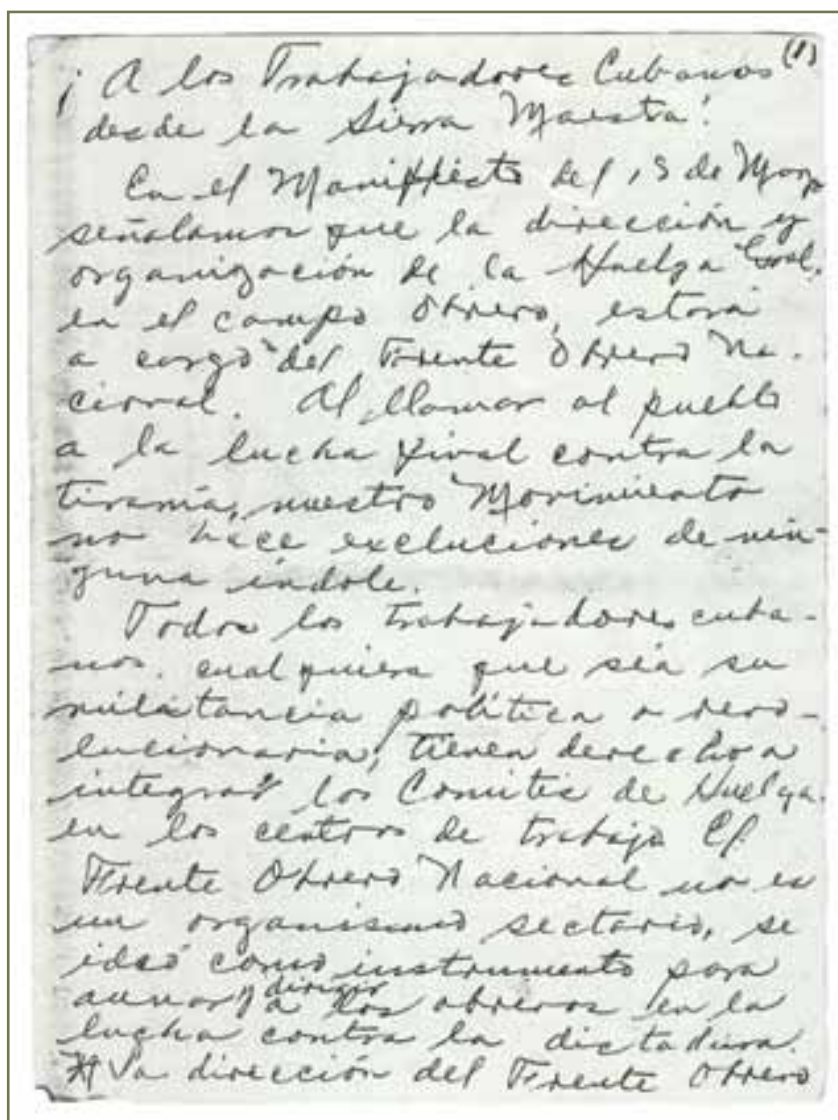 (1)
¡A los Trabajadores Cubanos
desde la Sierra Maestra!
En el Manifiesto del 12 de Marzo
señalamos que la dirección y
organización de la Huelga Gral.
en el campo obrero, estará
a cargo del Frente Obrero Na-
cional. Al llamar al pueblo
a la lucha final contra la
tiranía, nuestro Movimiento
no hace excluciones de nin-
guna índole.
Todos los trabajadores cuba-
nos, cualquiera que sea su
militancia política o revo-
lucionaria, tienen derecho a
integrar los Comités de Huelga
en los centros de trabajo El
Frente Obrero Nacional no es
un organismo sectario, se
ideó como instrumento para
aunar y dirigir a los obreros en la
lucha contra la dictadura.
La dirección del Frente Obrero